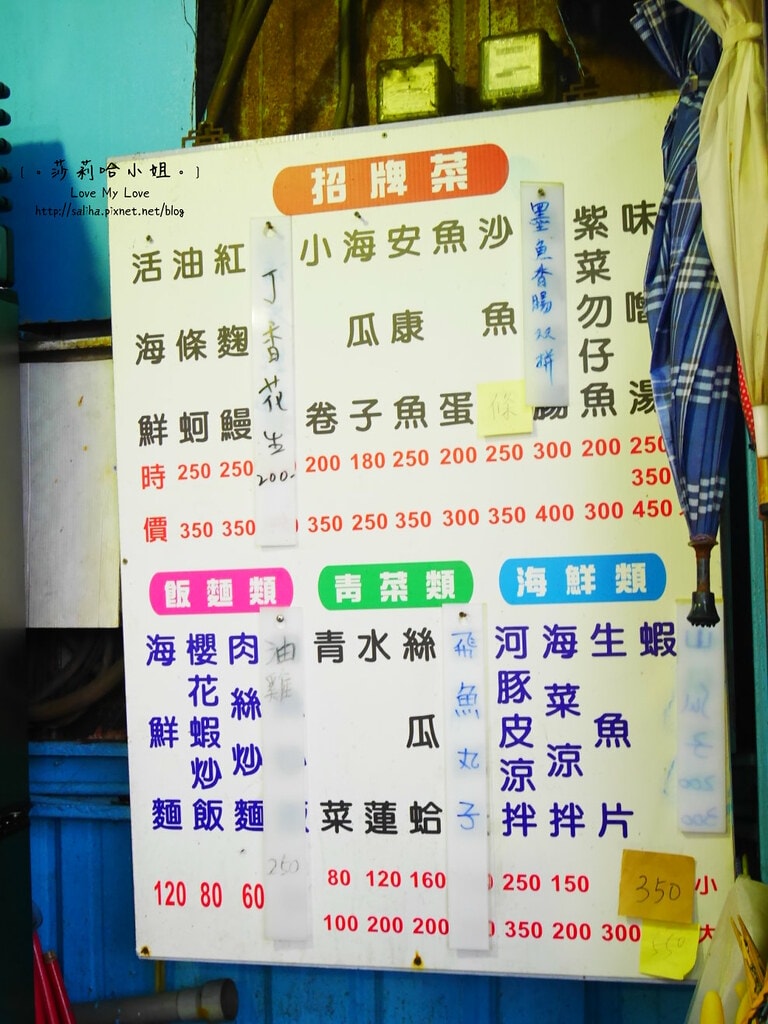 ﹝。莎莉哈小姐。﹞
Love My Love
http://saliha.pixnet.net/blog
招牌菜
味噌湯
紫菜勿仔魚
墨魚香腸双拼
沙魚
條
魚蛋
安康魚
海瓜子
小卷
丁香花生
200-
紅麴鰻
油條蚵
活海鮮
時 250 250 200 180 250 200 250 300 200 250
350
價 350 350 350 250 350 300 350 400 300 450
飯麵類
青菜類
海鮮類
蝦
生魚片
海菜涼拌
河豚皮涼拌
飛魚丸子
絲瓜蛤
水蓮
青菜
油雞
250
肉絲炒麵
櫻花蝦炒飯
海鮮麵
120 80 60
80 120 160 250 150 350 小
100 200 200 350 200 300 550 大
200
300